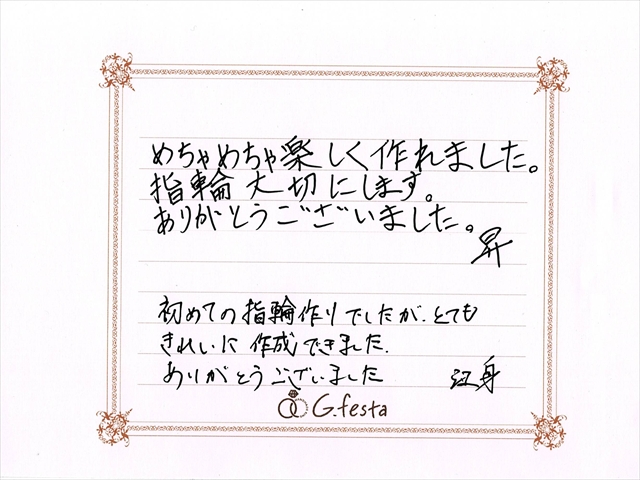 めちゃめちゃ楽しく作れました。
指輪大切にします。
ありがとうございました。
昇
初めての指輪作りでしたが、とても
きれいに作成できました.
ありがとうございました
G.festa